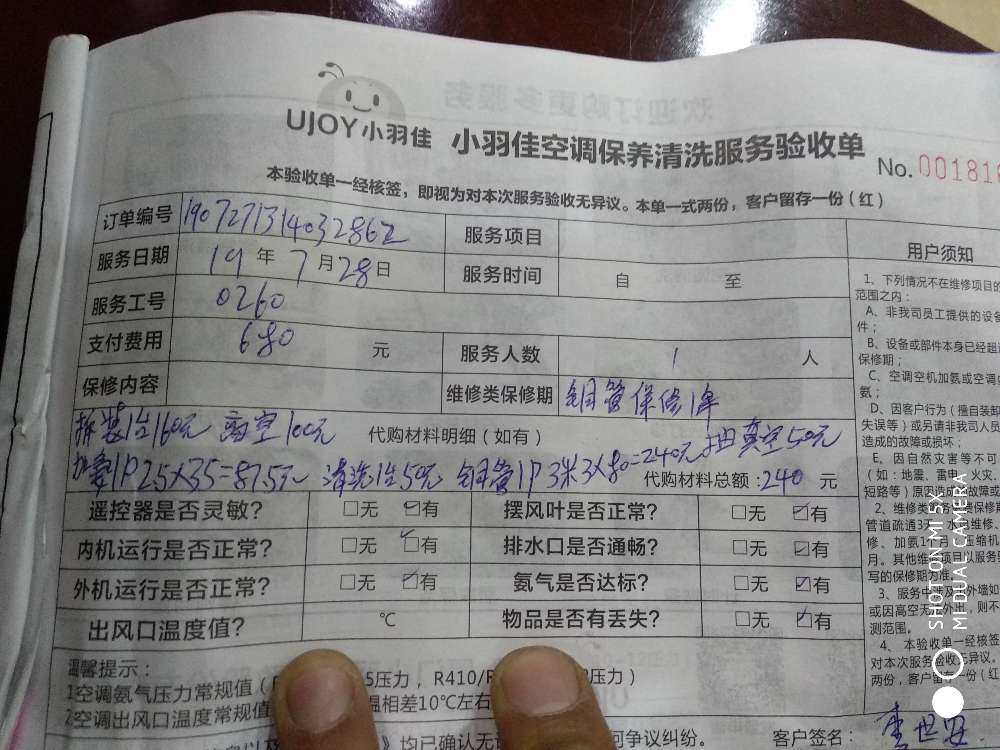 UJOY小羽佳 小羽佳空调保养清洗服务验收单
No. 001816
本验收单一经核签，即视为对本次服务验收无异议。本单一式两份，客户留存一份（红）
订单编号 190727131403286Z 服务项目
服务日期 19 年 7 月 28 日 服务时间 自 至
服务工号 0260
支付费用 680 元 服务人数 1 人
保修内容 维修类保修期 铜管保修1年
拆装1台160元 高空100元 代购材料明细（如有）
加氨1P 25X35=87.5元 清洗1台50元 铜管1P 3米 3X80=240元 抽真空50元
代购材料总额：240 元
遥控器是否灵敏? □无 ☑有 摆风叶是否正常? □无 ☑有
内机运行是否正常? □无 ☑有 排水口是否通畅? □无 ☑有
外机运行是否正常? □无 ☑有 氨气是否达标? □无 ☑有
出风口温度值? ℃ 物品是否有丢失? □无 ☑有
温馨提示：
1空调氨气压力常规值（ 5压力，R410/ 压力）
2空调出风口温度常规值 温相差10℃左右
》均已确认无 何争议纠纷。
客户签名： 李世安
用户须知
1、下列情况不在维修项目的
范围之内：
A、非我司员工提供的设备
件；
B、设备或部件本身已经超
保修期；
C、空调空机加氨或空调
氨；
D、因客户行为（擅自装卸
失误等）或另请非我司人员
造成的故障或损坏；
E、因自然灾害等不可
（如：地震、雷电、火灾、
短路等）原因造成的故障或
2、维修类服务 保修期
管道疏通3天、水电维修、
修、加氨1个月、压缩机
月。其他维修项目以服务
写的保修期为准。
3、服务中涉及出外墙如
或因高空无 外出，则不
测范围。
4、本验收单一经核签
对本次服务验收无异议。
两份，客户留存一份（红
SHOT ON MI 5X
MI DUAL CAMERA